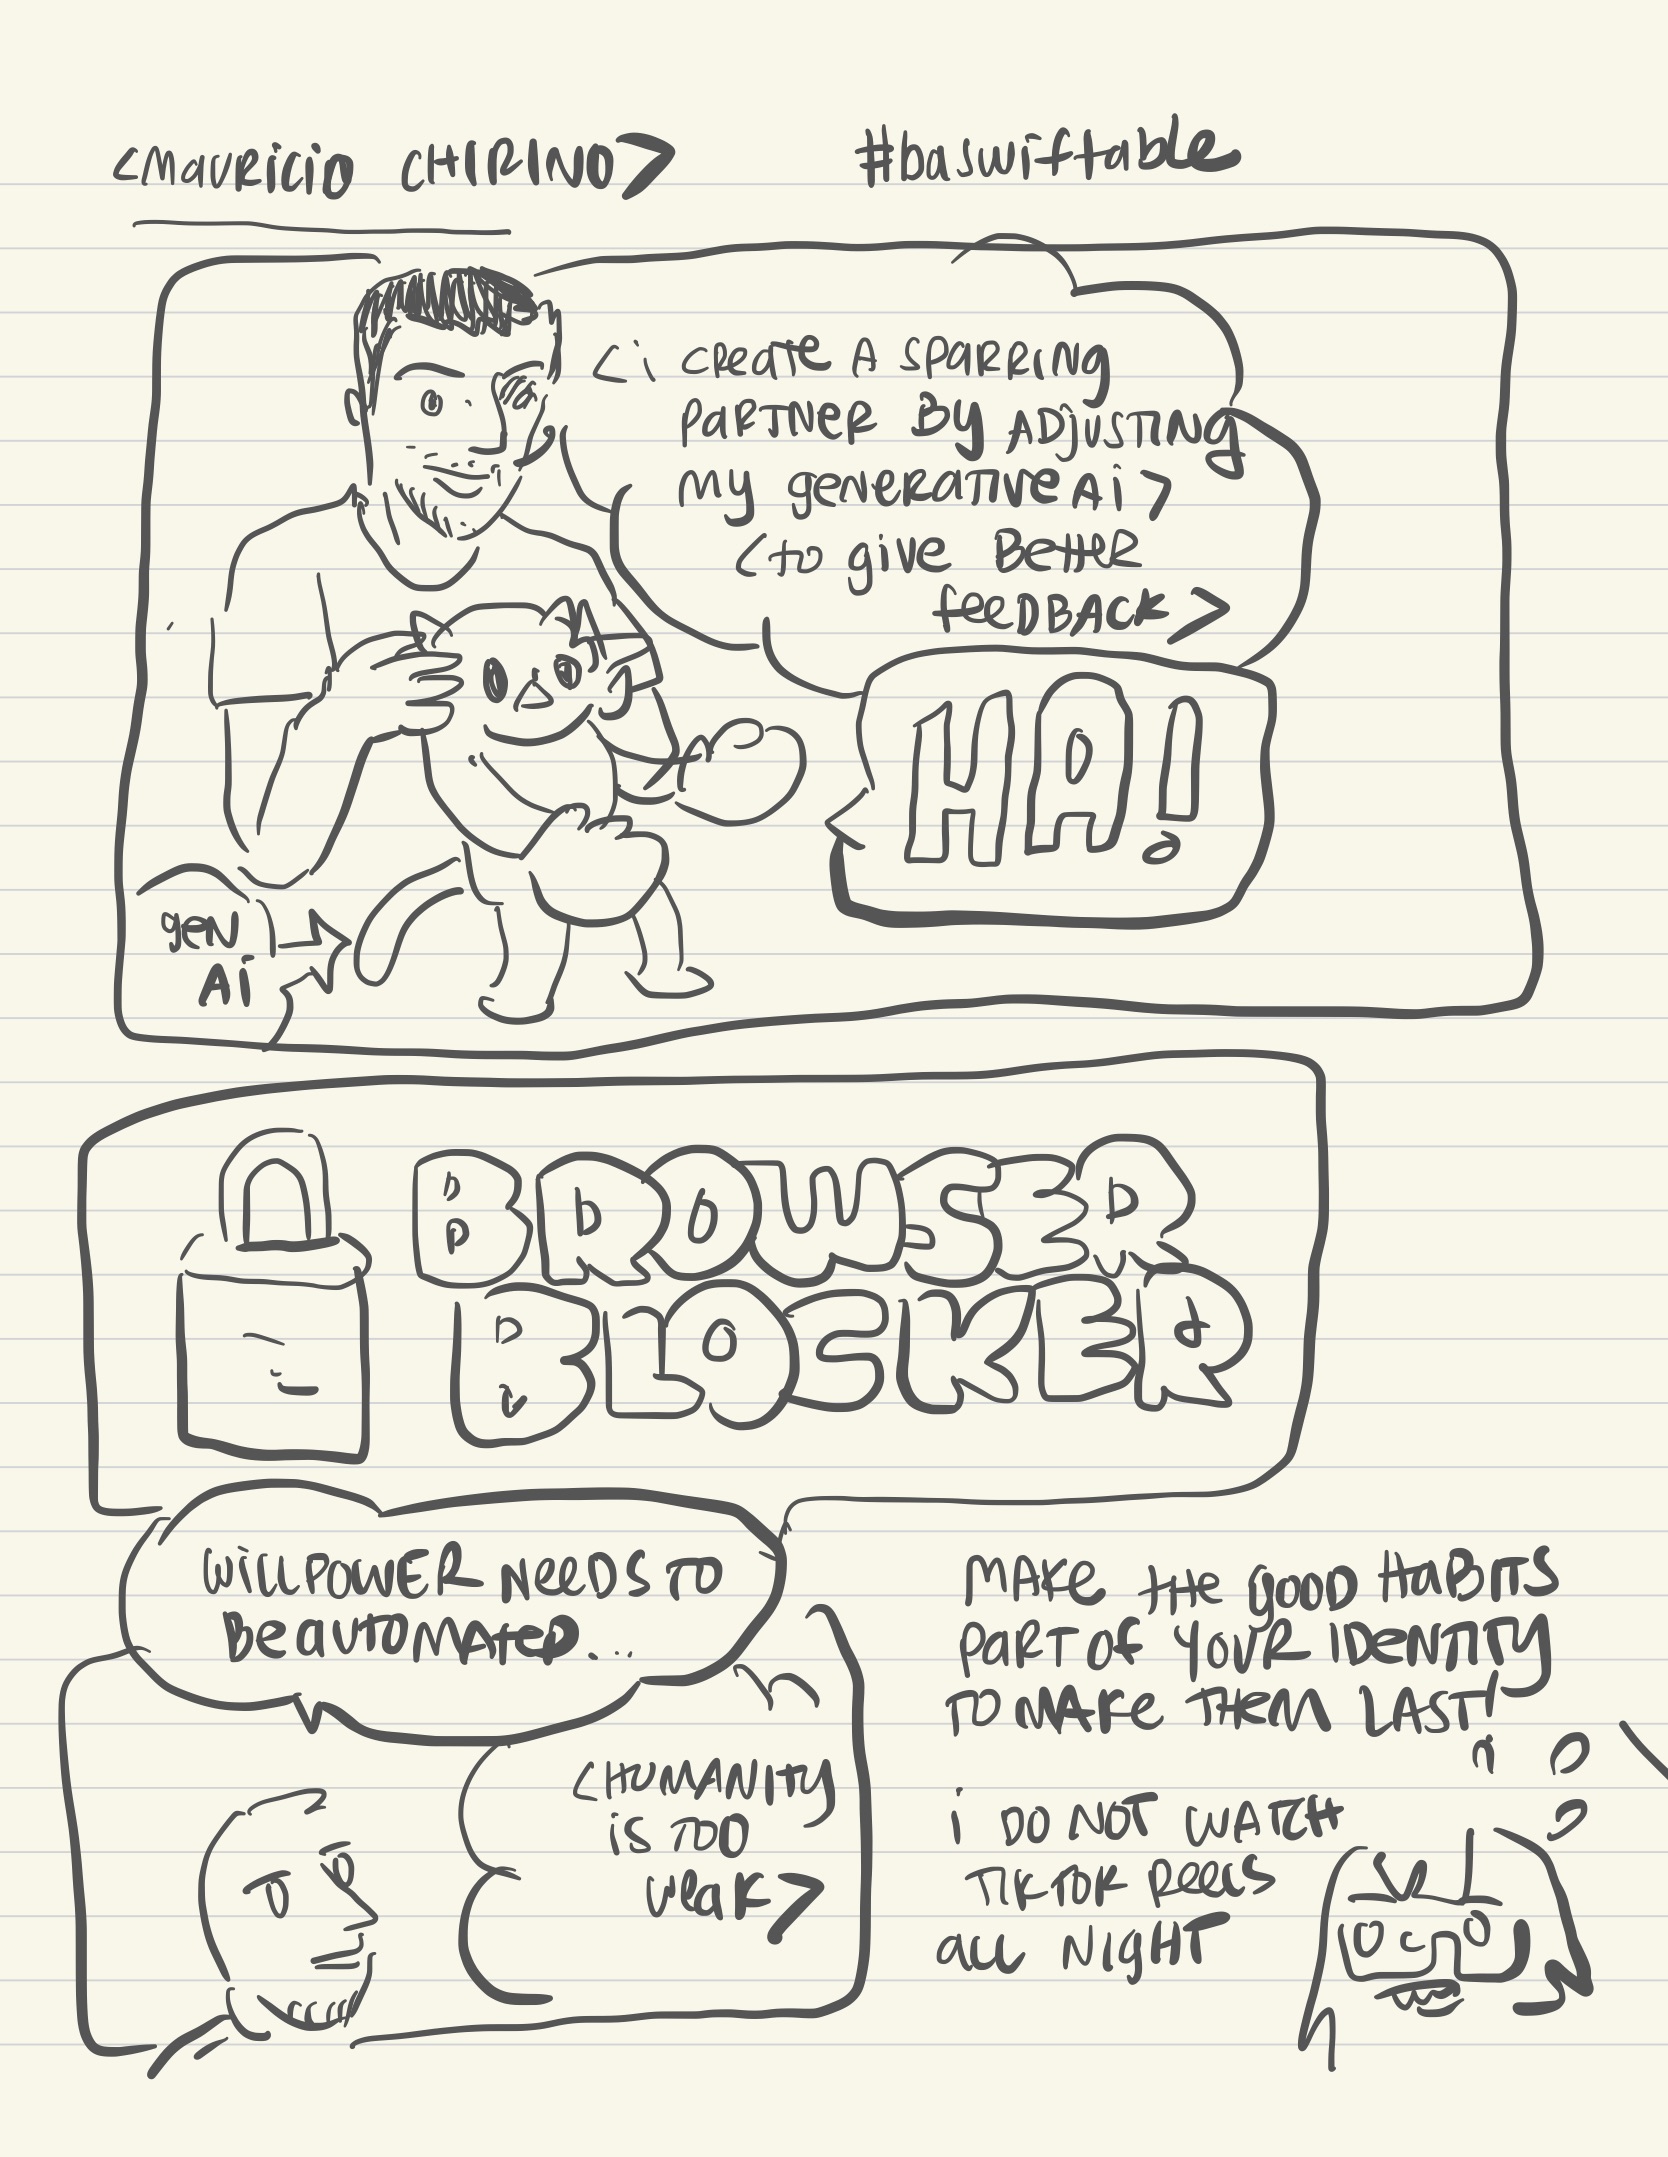 <Mauricio CHIRINO>
#baswiftable
<i create a sparring
partner by adjusting
my generative Ai>
<to give better
feedback>
HA!
gen
Ai
BROWSER
BLOCKER
WILLPOWER NEEDS TO
be automated...
<HUMANITY
is TOO
weak>
MAKE THE gOOD HABITS
PART Of YOUR IDENTITY
TO MAKE THEM LAST!
i DO NOT WATCH
TIKTOK REELS
all NIGHT